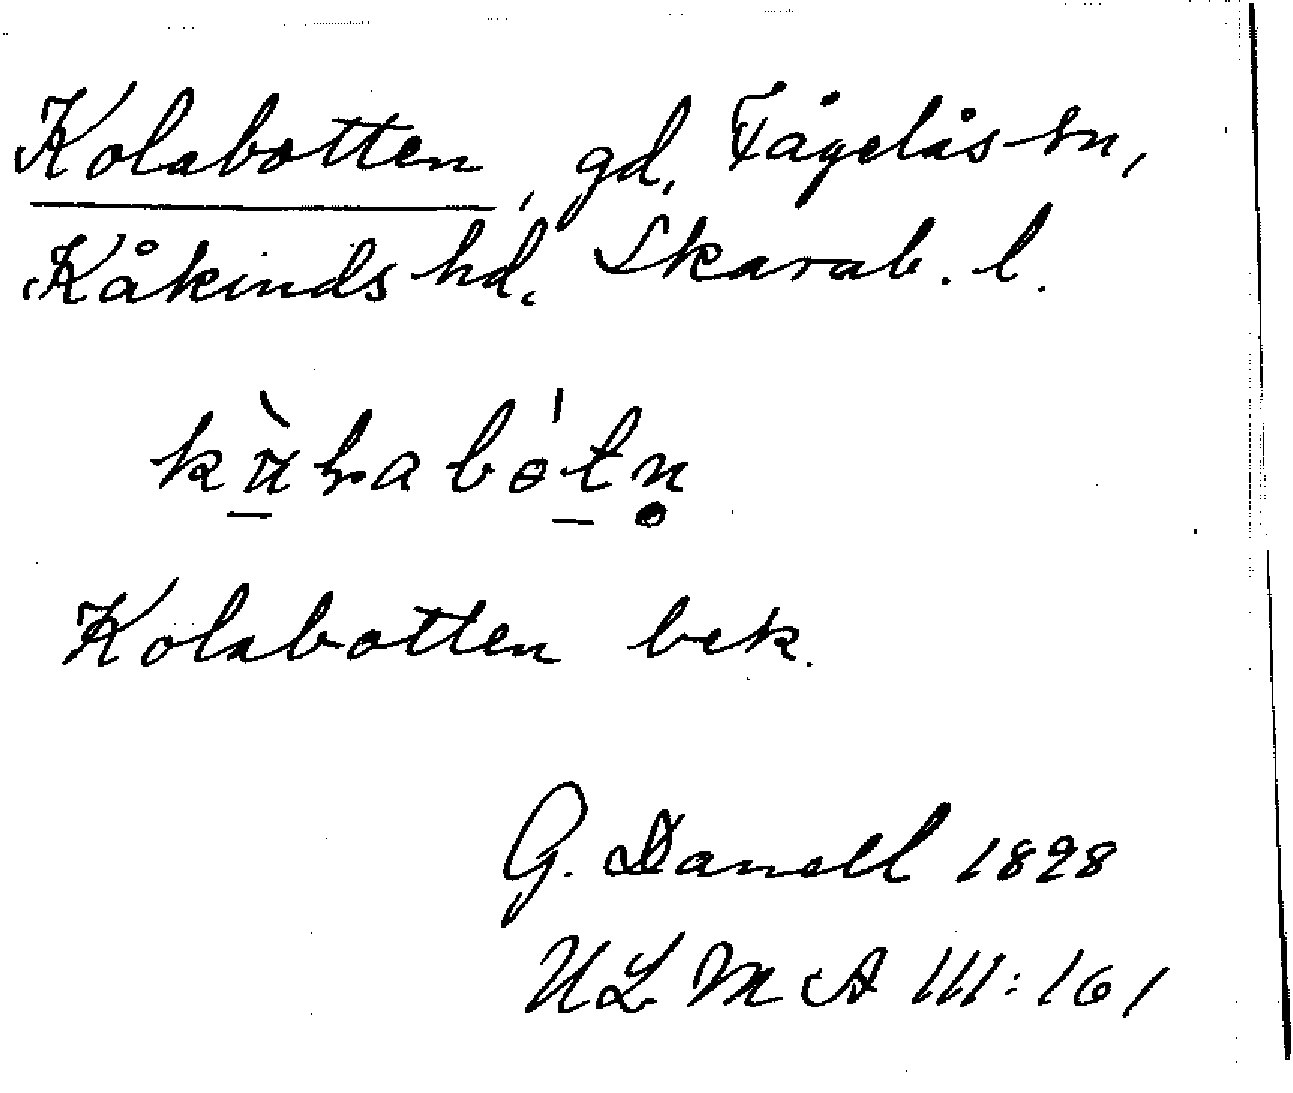 Kolabotten, gd, Fågelås sn,
Kåkinds hd, Skarab. l.
Kolabotten bek.
G. Danell 1898
ULMA 111:161